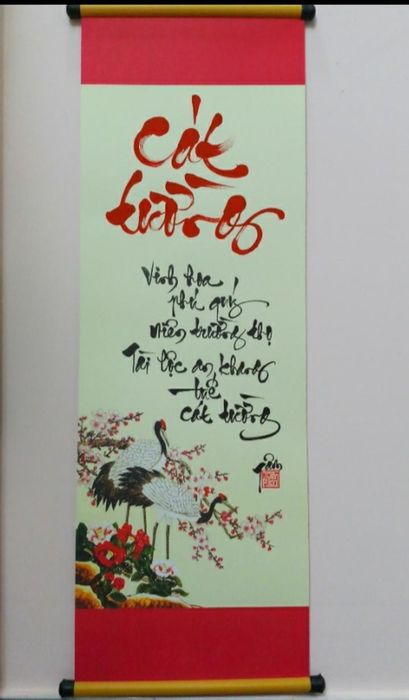 Cát
tường
Vinh hoa
phú quý
niên trường thọ
Tài lộc an khang
thế
cát tường